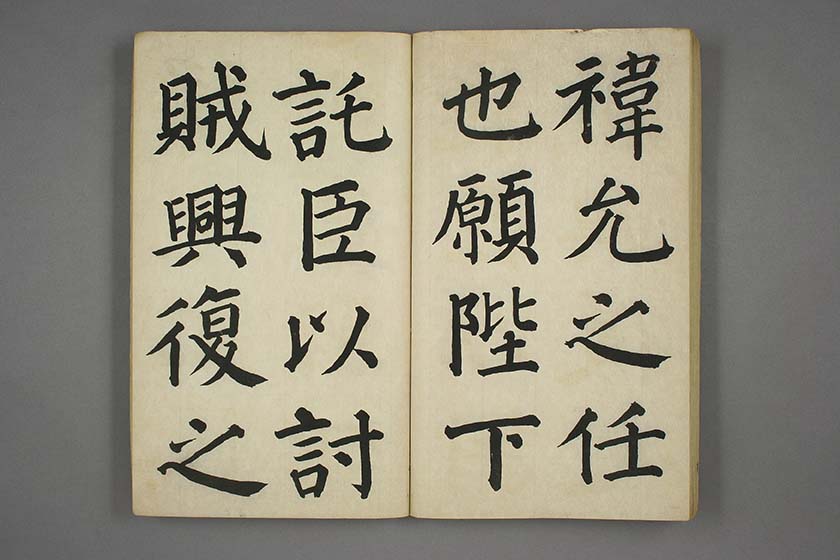 禕允之任
也願陛下
託臣以討
賊興復之